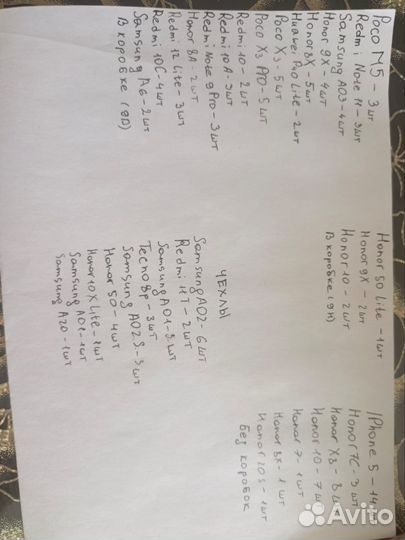 Poco M5 - 3шт
Redmi Note 11 - 3шт
Samsung A03 - 4шт
Honor 9X - 4шт
Honor 8X - 5шт
Huawei P40 Lite - 2шт
Poco X3 - 5шт
Poco X3 Pro - 5шт
Redmi 10 - 2шт
Redmi 10A - 3шт
Redmi Note 9 Pro - 3шт
Honor 8A - 2шт
Redmi 12 Lite - 3шт
Redmi 10C - 4шт
Samsung A6 - 2шт
В коробке (9D)
Honor 50 Lite - 1шт
Honor 9X - 2шт
Honor 10 - 2шт
В коробке (9H)
ЧЕХЛЫ
Samsung A02 - 6шт
Redmi 11T - 2шт
Samsung A01 - 3шт
Tecno 8p - 3шт
Samsung A02S - 3шт
Honor 50 - 4шт
Honor 10X Lite - 1шт
Samsung A01 - 1шт
Samsung A20 - 1шт
IPhone 5 - 14шт
Honor 7C - 3шт
Honor X8 - 8шт
Honor 10 - 7шт
Honor 7 - 1шт
Honor 8X - 1шт
Honor 20S - 1шт
Без коробок
Avito